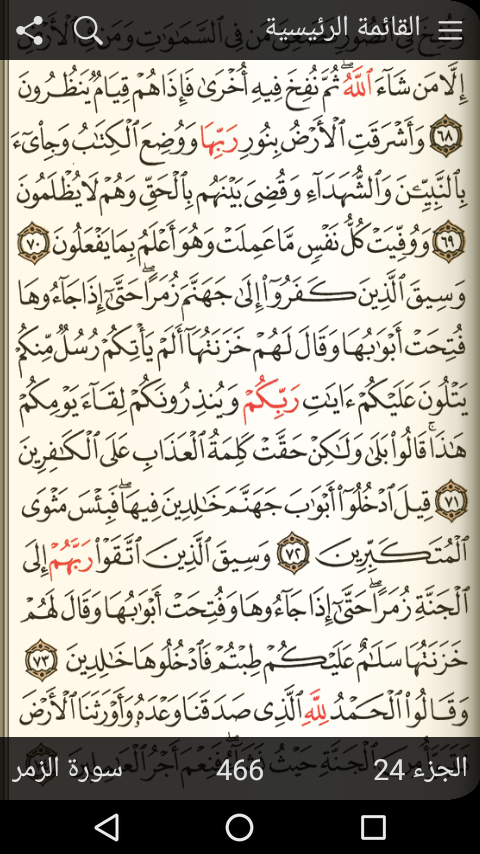 القائمة الرئيسية
إِلَّا مَن شَآءَ ٱللَّهُ ۖ ثُمَّ نُفِخَ فِيهِ أُخْرَىٰ فَإِذَا هُمْ قِيَامٌ يَنظُرُونَ
٦٨ وَأَشْرَقَتِ ٱلْأَرْضُ بِنُورِ رَبِّهَا وَوُضِعَ ٱلْكِتَٰبُ وَجِا۟ىٓءَ
بِٱلنَّبِيِّۦنَ وَٱلشُّهَدَآءِ وَقُضِىَ بَيْنَهُم بِٱلْحَقِّ وَهُمْ لَا يُظْلَمُونَ
٦٩ وَوُفِّيَتْ كُلُّ نَفْسٍ مَّا عَمِلَتْ وَهُوَ أَعْلَمُ بِمَا يَفْعَلُونَ ٧٠
وَسِيقَ ٱلَّذِينَ كَفَرُوٓا۟ إِلَىٰ جَهَنَّمَ زُمَرًا ۖ حَتَّىٰٓ إِذَا جَآءُوهَا
فُتِحَتْ أَبْوَٰبُهَا وَقَالَ لَهُمْ خَزَنَتُهَآ أَلَمْ يَأْتِكُمْ رُسُلٌ مِّنكُمْ
يَتْلُونَ عَلَيْكُمْ ءَايَٰتِ رَبِّكُمْ وَيُنذِرُونَكُمْ لِقَآءَ يَوْمِكُمْ
هَٰذَا ۚ قَالُوا۟ بَلَىٰ وَلَٰكِنْ حَقَّتْ كَلِمَةُ ٱلْعَذَابِ عَلَى ٱلْكَٰفِرِينَ
٧١ قِيلَ ٱدْخُلُوٓا۟ أَبْوَٰبَ جَهَنَّمَ خَٰلِدِينَ فِيهَا ۖ فَبِئْسَ مَثْوَى
ٱلْمُتَكَبِّرِينَ ٧٢ وَسِيقَ ٱلَّذِينَ ٱتَّقَوْا۟ رَبَّهُمْ إِلَى
ٱلْجَنَّةِ زُمَرًا ۖ حَتَّىٰٓ إِذَا جَآءُوهَا وَفُتِحَتْ أَبْوَٰبُهَا وَقَالَ لَهُمْ
خَزَنَتُهَا سَلَٰمٌ عَلَيْكُمْ طِبْتُمْ فَٱدْخُلُوهَا خَٰلِدِينَ ٧٣
وَقَالُوا۟ ٱلْحَمْدُ لِلَّهِ ٱلَّذِى صَدَقَنَا وَعْدَهُۥ وَأَوْرَثَنَا ٱلْأَرْضَ
الجزء 24 466 سورة الزمر